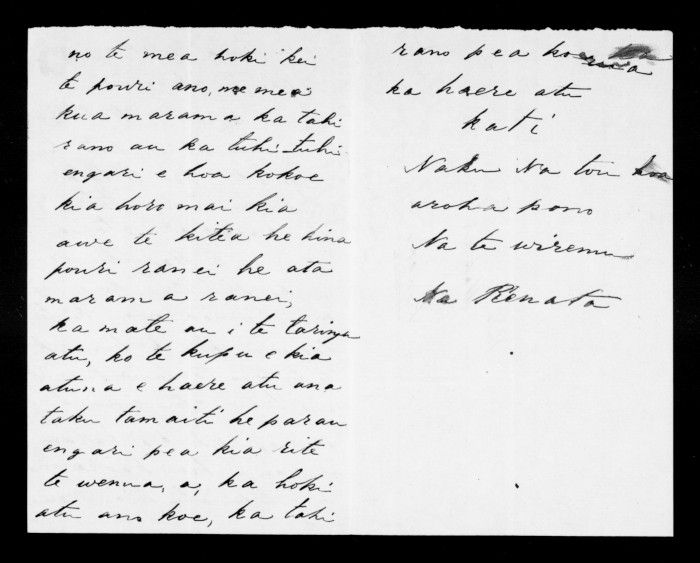 no te mea hoki kei
te pouri ano, me mea
kua marama ka tahi
rano au ka tuhi tuhi
engari e hoa kokoe
kia horo mai kia
awe te kitea he hina
pouri ranei he ata
marama ranei,
ka mate au i te taringa
atu, ko te kupu e kia
atuna e haere atu ana
taku tamaiti he parau
engari pea kia rite
te wenua, a, ka hoki
atu ano koe, ka tahi
rano pea koe
ka haere atu
kati
Naku Na tou hoa
aroha pono
Na te wiremu
Na Renata